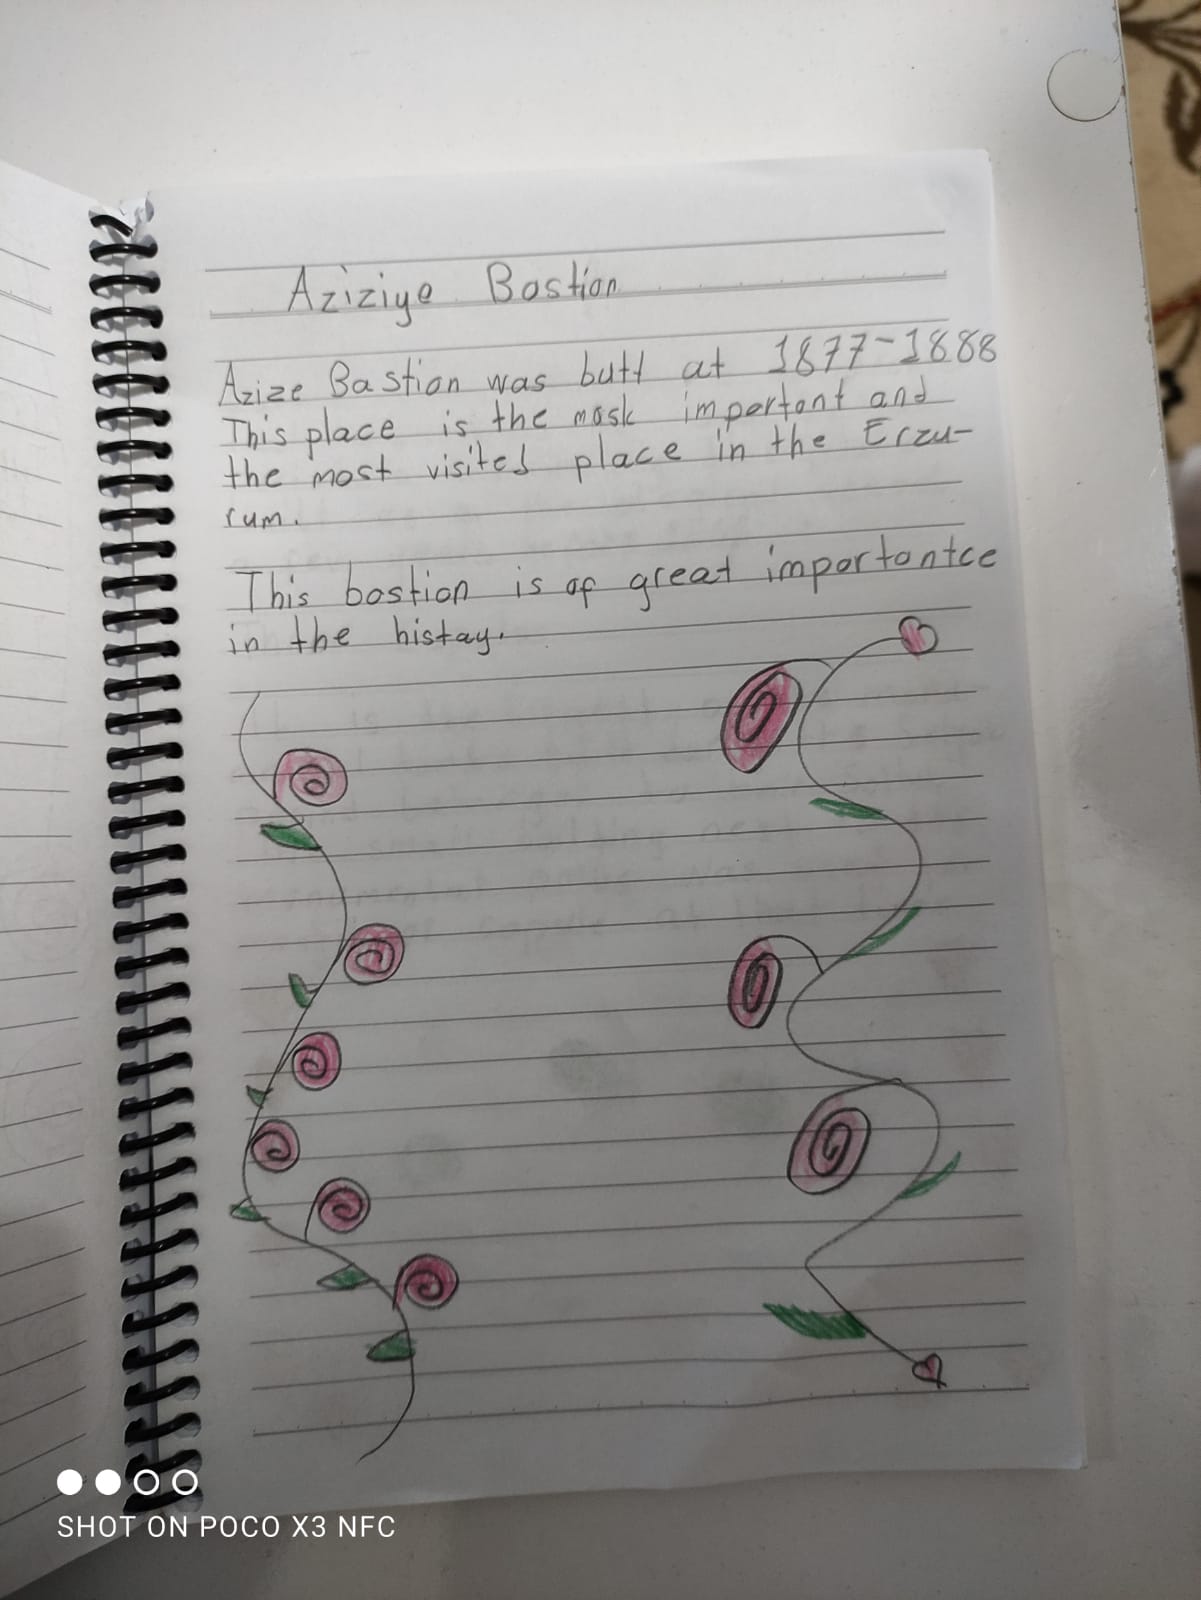 Aziziye Bastion
Azize Bastion was butt at 1877-1888
This place is the mosk impertont and
the most visited place in the Erzu-
rum.
This bastion is of great importontce
in the histay.
SHOT ON POCO X3 NFC